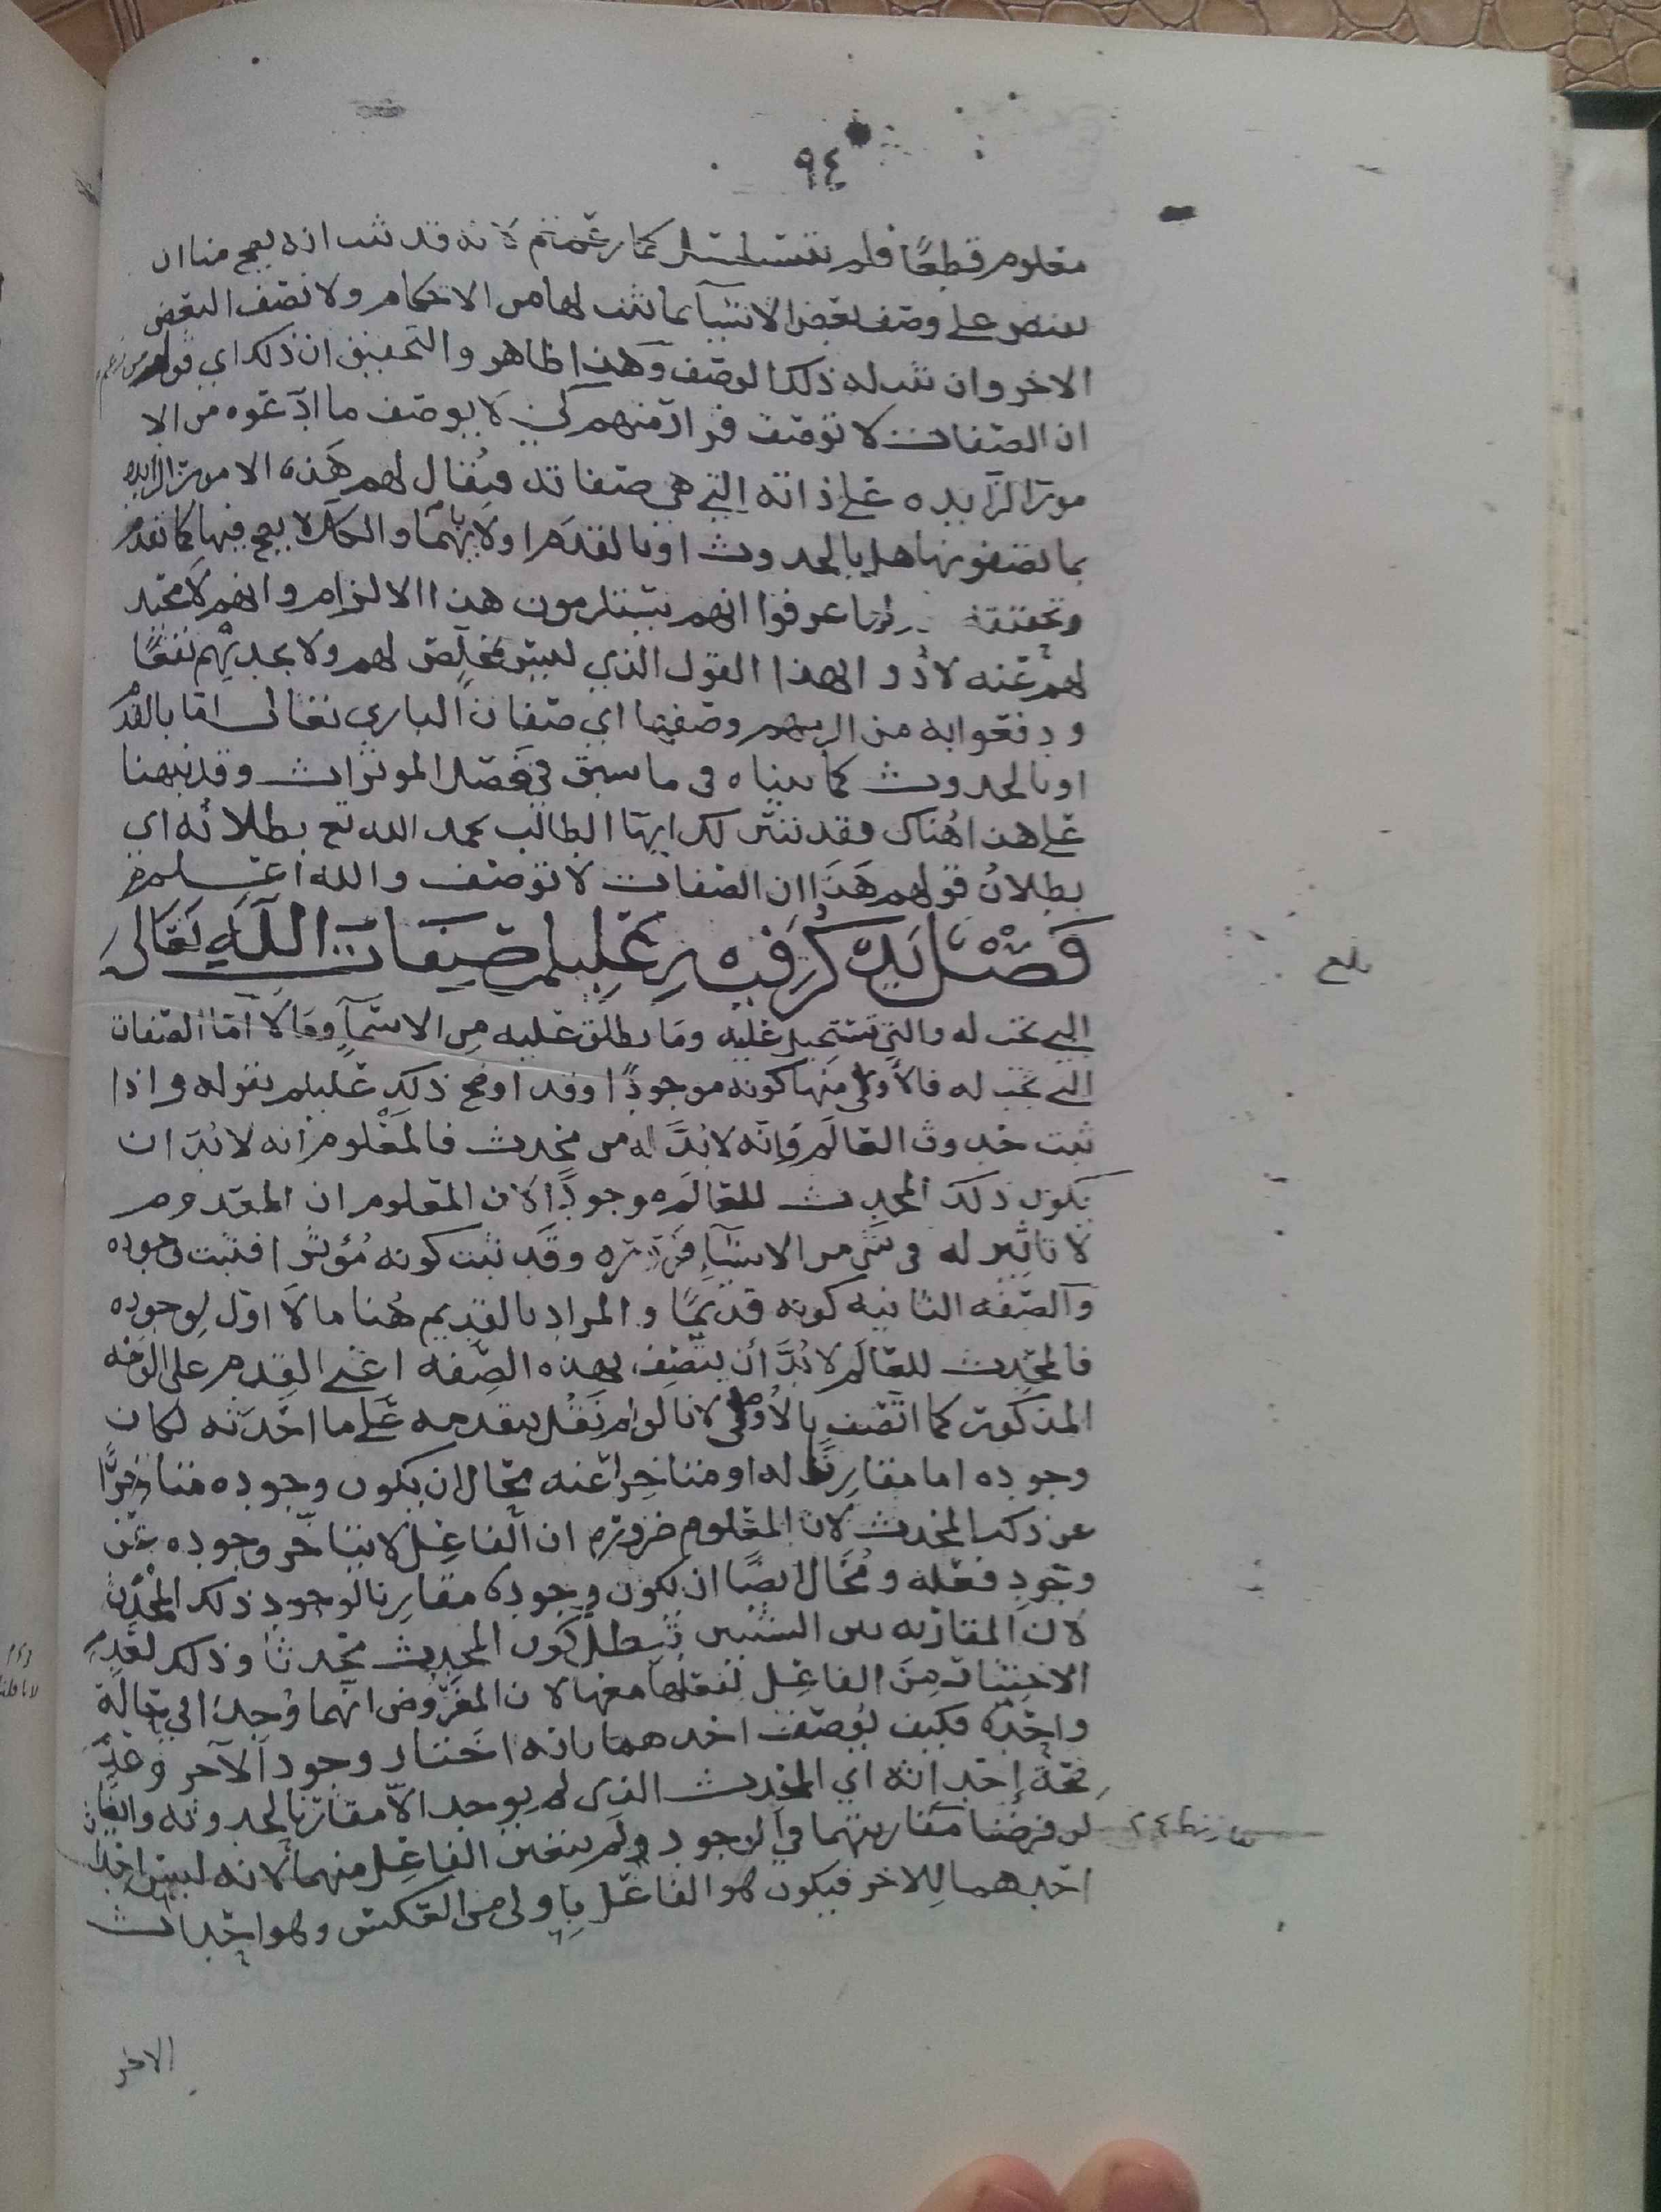 ٩٤
معلوم قطعًا فلم يتسلسل كما زعمتم لانه قد ثبت انه يصح منا ان
على وصف بعض الاشيآ بما ثبت لها من الاحكام ولا نصف البعض
الاخر وان ثبت له ذلك الوصف وهذا ظاهر والتحقيق ان ذلك اي قولهم
ان الصفات لا توصف فرار منهم كي لا يوصف ما ادّعوه من الا
مور الزايده على ذاته التي هي صفاته فيُقال لهم هَذه الامور الزايده
بما تصفونها هل بالحدوث او بالقدم او لا بايهما والكل لا يصح فيها كما تقدم
وتحقيقه لما عرفوا انهم يستلزمون هذا الالزام وانهم لا محيد
لهم عنه لاذوا لهذا القول الذي ليس بمخلِّص لهم ولا يجديهم نفعًا
ودفعوا به من وصفها اي صفات الباري تعالى اما بالقدم
او بالحدوث كما بيناه فى ما سبق في فصل الموثرات وقد نبهنا
على هذا هُناك وقد تبين لك ايها الطالب بحمد الله تع بطلانُه اي
بطلانُ قولهم هَذا ان الصفات لا توصف والله اعلم
فَصْل يَذكُر فيه عليلم صِفَات اللَّهِ تَعَالى
التي تجب له والتي تستحيل عليه ومَا يطلق عليه مِن الاسمآِ ومَا لا اما الصفات
التي تجب له فالأولى منها كونه موجودًا وقد اوضح ذلك عليلم بقوله واذا
ثبت حدوث العَالَم وَانّه لا بُدَّ له من محدث فالمَعْلوم انه لا بُدّ ان
يكون ذلك المحدث للعَالَم موجودًا لان المعلوم ان المعدوم
لا تاثير له فى شي من الاشيآءِ ضرورَه وقَد ثبت كونه مُؤثرا فثبت وجوده
وَالصّفه الثانيه كونه قديمًا والمراد بالقديم هُنا ما لا اوّل لوجوده
فالمحدِث للعَالَم لا بُدَّ أن يتصف بهذه الصِّفه اعني القِدم على الوَجْه
المذكور كما اتّصف بالأولى لانا لو لم نَقُل بتقدمه عَلى ما احْدَثه لكان
وجوده اما مقارِنًا له او متاخِرا عنه محَال ان يكون وجوده متاخِرًا
عن ذلك المحدث لان المعْلوم ضروره ان الفاعِل لا يتاخر وجوده عن
وجودِ فعله ومُحَال ايضًا ان يكون وجودهُ مقارِنا لوجودِ ذلك المُحْدَث
لان المقارنه بين الشيئين تبطل كون المحدِث محدثًا وذلك لعدم
الاختيار مِنَ الفاعِل لفعلها معها لان المفرُوض انهما وُجدَا في حَالة
واحِدَه فكيف يُوصَف احدهما بانه اختار وجود الآخر وَعدم
صحّة إحدَاثه اي المحدث الذى لم يوجد الاّ مقارنا لحدوثه وايضًا
لو فرضنا مقارنتهما في الوجود ولَم يتعين الفاعِل منهما لانه ليس احداث
احدهما لِلاخر فيكون هُو الفاعل بِاولى من العكس وهو احداث
الاخر
بلغ